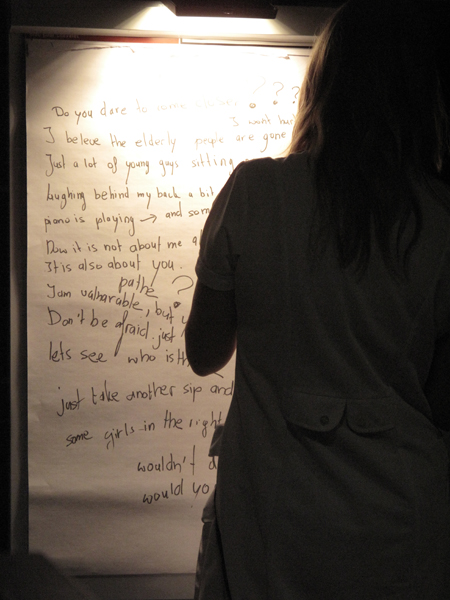 Do you dare to come ???
I wont
I beleve the elderly people are gone
Just a lot of young guys sitting
laughing behind my back a bit
piano is playing → and som
Now it is not about me
It is also about you.
pathe ?
I am vulnarable, but
Don't be afraid. just
lets see who is th
just take another sip and
some girls in the right
wouldn't d
would yo